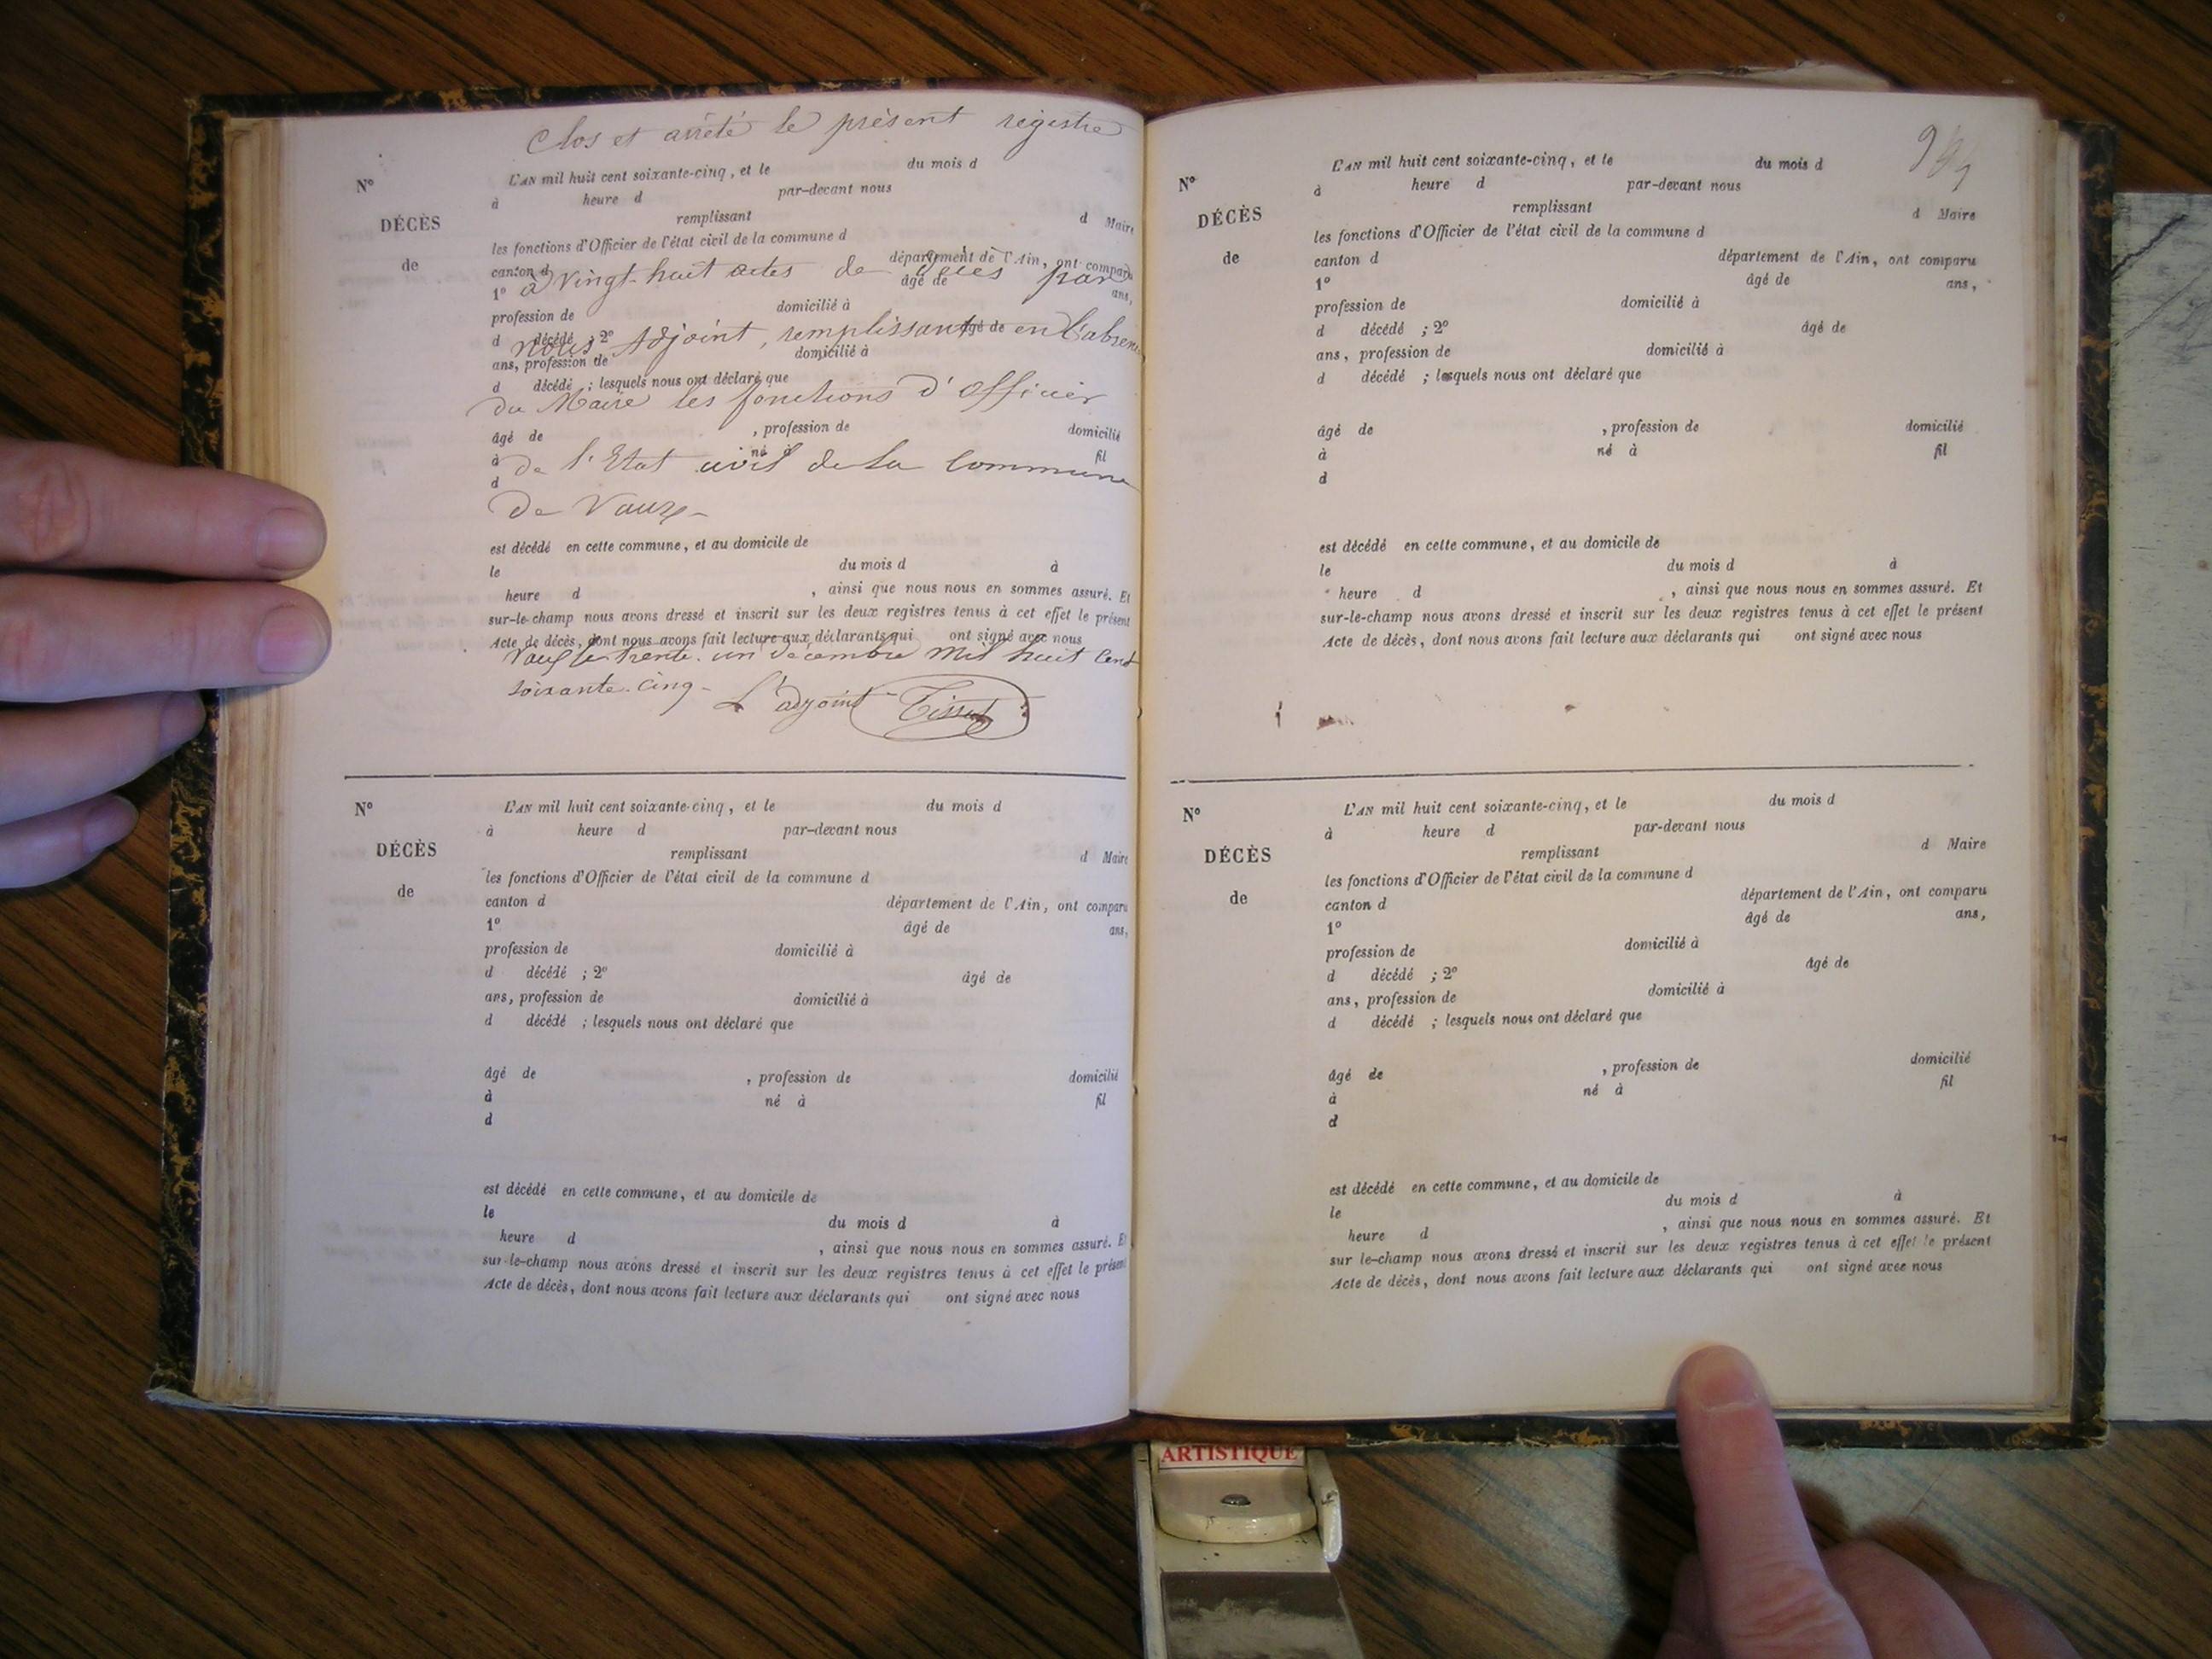 Clos et arrêté le présent registre
N° L'AN mil huit cent soixante-cinq, et le du mois d
à heure d par-devant nous
DÉCÈS remplissant d Maire
les fonctions d'Officier de l'état civil de la commune d
de canton d département de l'Ain, ont comparu
à vingt-huit actes de décès par
1° âgé de ans,
profession de domicilié à
d décédé ; 2° âgé de
nous Adjoint, remplissant en l'absence
ans, profession de domicilié à
d décédé ; lesquels nous ont déclaré que
du Maire les fonctions d'officier
âgé de , profession de domicilié
à né à fil
de l'Etat civil de la Commune
d
de Vaux-
est décédé en cette commune, et au domicile de
le du mois d à
heure d , ainsi que nous nous en sommes assuré. Et
sur-le-champ nous avons dressé et inscrit sur les deux registres tenus à cet effet le présent
Acte de décès, dont nous avons fait lecture aux déclarants qui ont signé avec nous
Vaux le trente-un décembre mil huit cent
soixante-cinq- L'adjoint Tissot
N° L'AN mil huit cent soixante-cinq, et le du mois d
à heure d par-devant nous
DÉCÈS remplissant d Maire
les fonctions d'Officier de l'état civil de la commune d
de canton d département de l'Ain, ont comparu
1° âgé de ans,
profession de domicilié à
d décédé ; 2° âgé de
ans, profession de domicilié à
d décédé ; lesquels nous ont déclaré que
âgé de , profession de domicilié
à né à fil
d
est décédé en cette commune, et au domicile de
le du mois d à
heure d , ainsi que nous nous en sommes assuré. Et
sur-le-champ nous avons dressé et inscrit sur les deux registres tenus à cet effet le présent
Acte de décès, dont nous avons fait lecture aux déclarants qui ont signé avec nous
N° L'AN mil huit cent soixante-cinq, et le du mois d
à heure d par-devant nous
DÉCÈS remplissant d Maire
les fonctions d'Officier de l'état civil de la commune d
de canton d département de l'Ain, ont comparu
1° âgé de ans,
profession de domicilié à
d décédé ; 2° âgé de
ans, profession de domicilié à
d décédé ; lesquels nous ont déclaré que
âgé de , profession de domicilié
à né à fil
d
est décédé en cette commune, et au domicile de
le du mois d à
heure d , ainsi que nous nous en sommes assuré. Et
sur-le-champ nous avons dressé et inscrit sur les deux registres tenus à cet effet le présent
Acte de décès, dont nous avons fait lecture aux déclarants qui ont signé avec nous
N° L'AN mil huit cent soixante-cinq, et le du mois d
à heure d par-devant nous
DÉCÈS remplissant d Maire
les fonctions d'Officier de l'état civil de la commune d
de canton d département de l'Ain, ont comparu
1° âgé de ans,
profession de domicilié à
d décédé ; 2° âgé de
ans, profession de domicilié à
d décédé ; lesquels nous ont déclaré que
âgé de , profession de domicilié
à né à fil
d
est décédé en cette commune, et au domicile de
le du mois d à
heure d , ainsi que nous nous en sommes assuré. Et
sur le-champ nous avons dressé et inscrit sur les deux registres tenus à cet effet le présent
Acte de décès, dont nous avons fait lecture aux déclarants qui ont signé avec nous
ARTISTIQUE